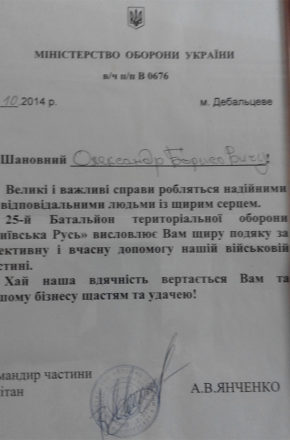 МІНІСТЕРСТВО ОБОРОНИ УКРАЇНИ
в/ч п/п В 0676
10.2014 р. м. Дебальцеве
Шановний Олександр Борисович
Великі і важливі справи робляться надійними
відповідальними людьми із щирим серцем.
25-й Батальйон територіальної оборони
иївська Русь» висловлює Вам щиру подяку за
ективну і вчасну допомогу нашій військовій
стині.
Хай наша вдячність вертається Вам та
шому бізнесу щастям та удачею!
мандир частини
ітан А.В.ЯНЧЕНКО